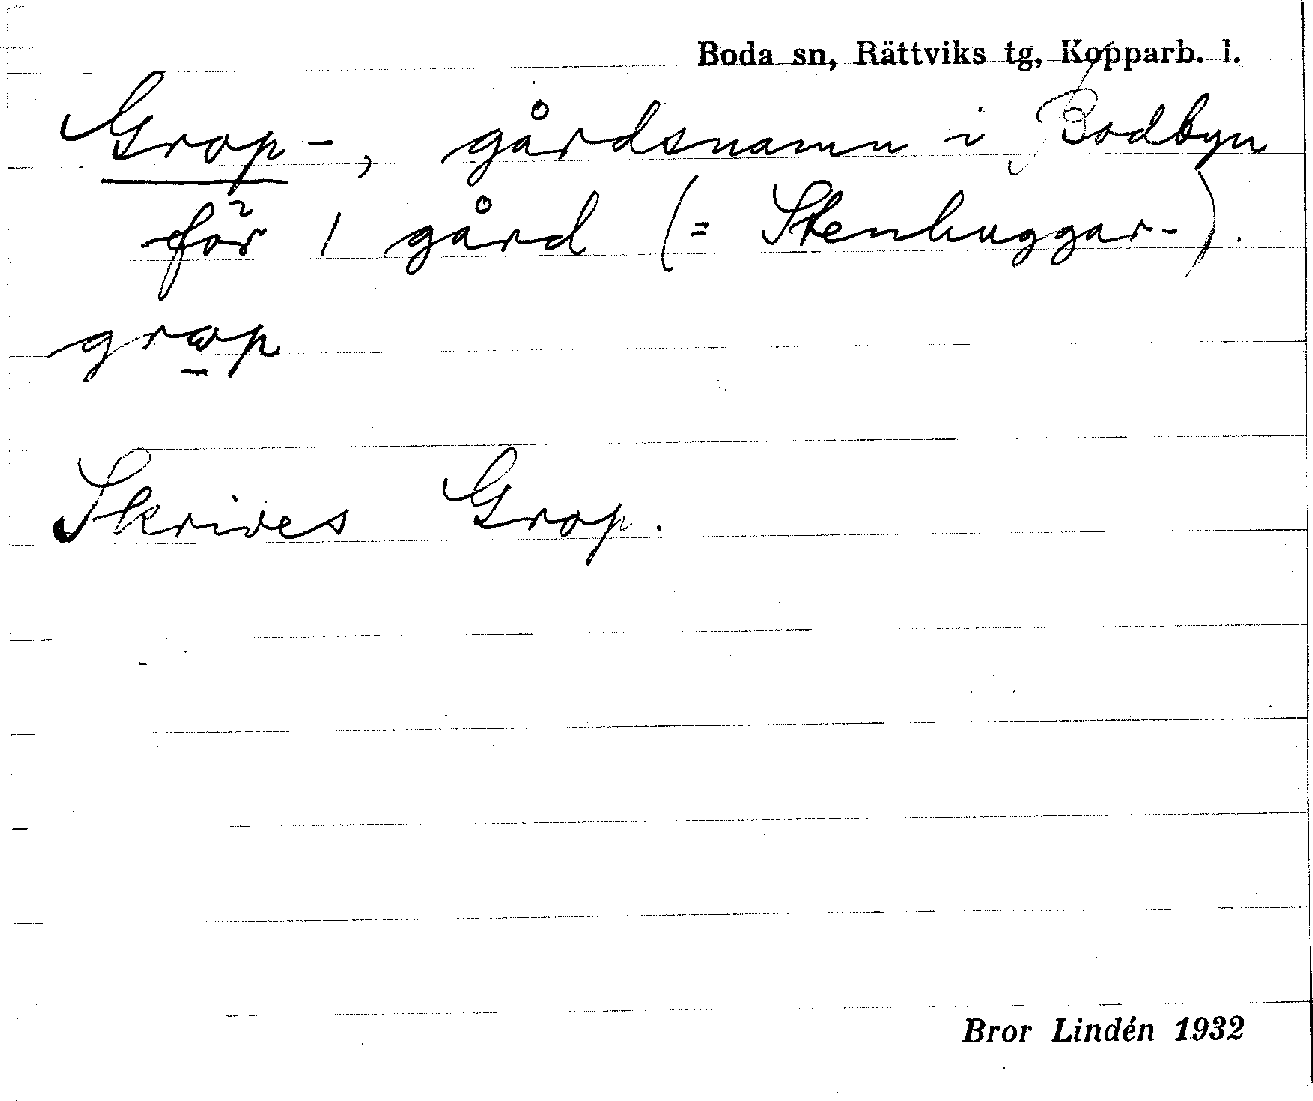 Boda sn, Rättviks tg, Kopparb. l.
Grop-, gårdsnamn i Bodbyn
för 1 gård (= Stenhuggar-).
grωp
Skrives Grop.
Bror Lindén 1932